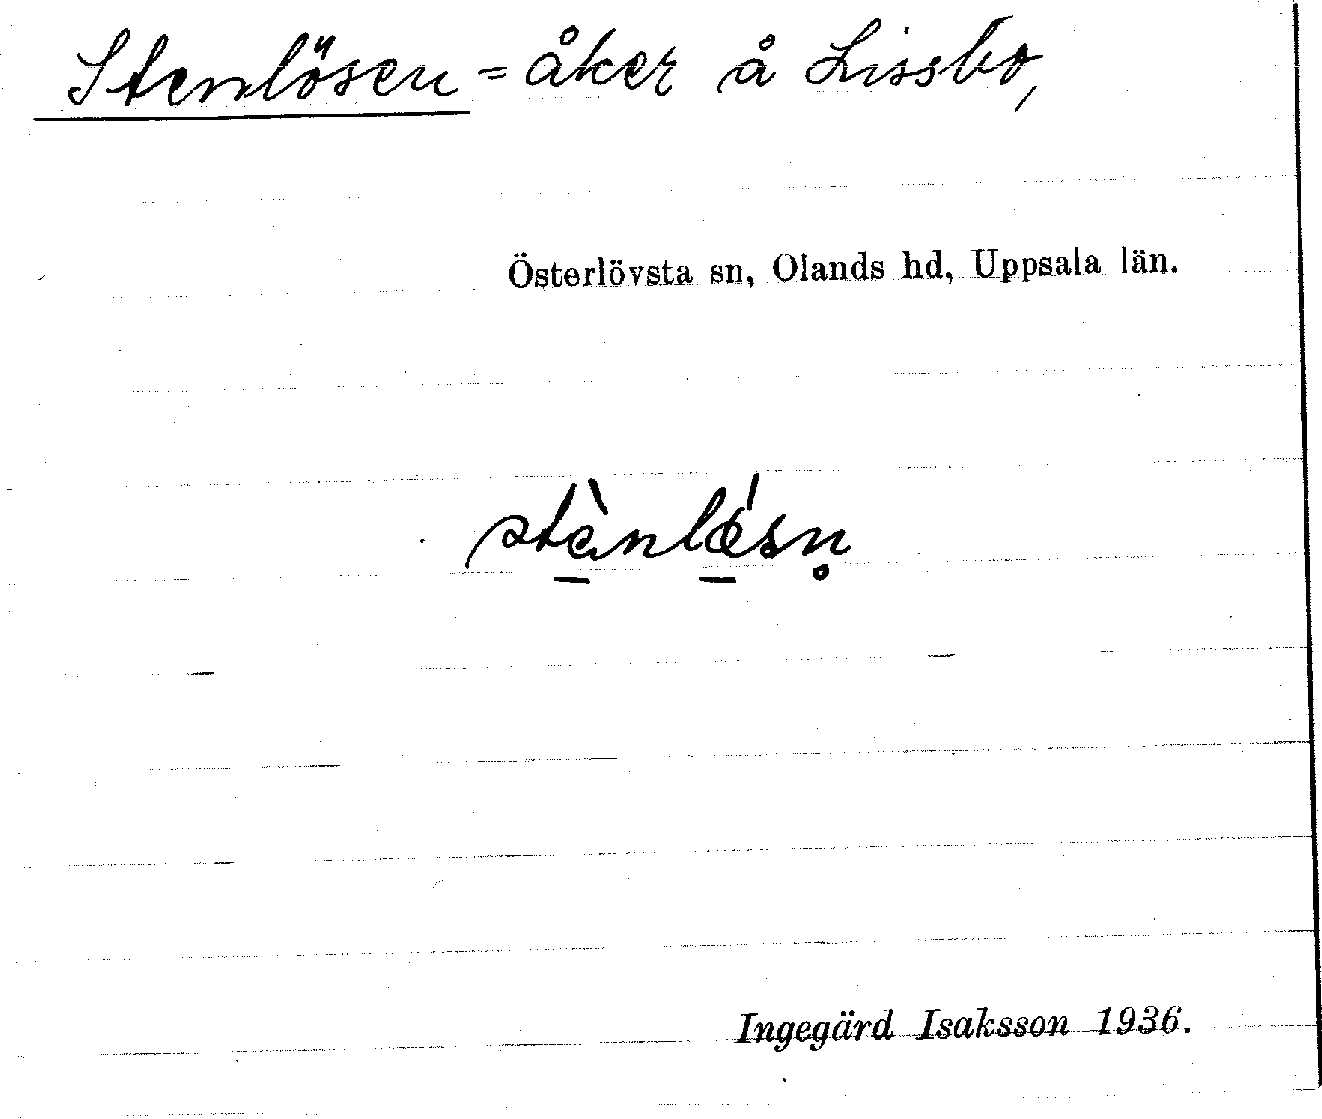 Stenlösen = åker å Lissbo,
Österlövsta sn, Olands hd, Uppsala län.
Ingegärd Isaksson 1936.